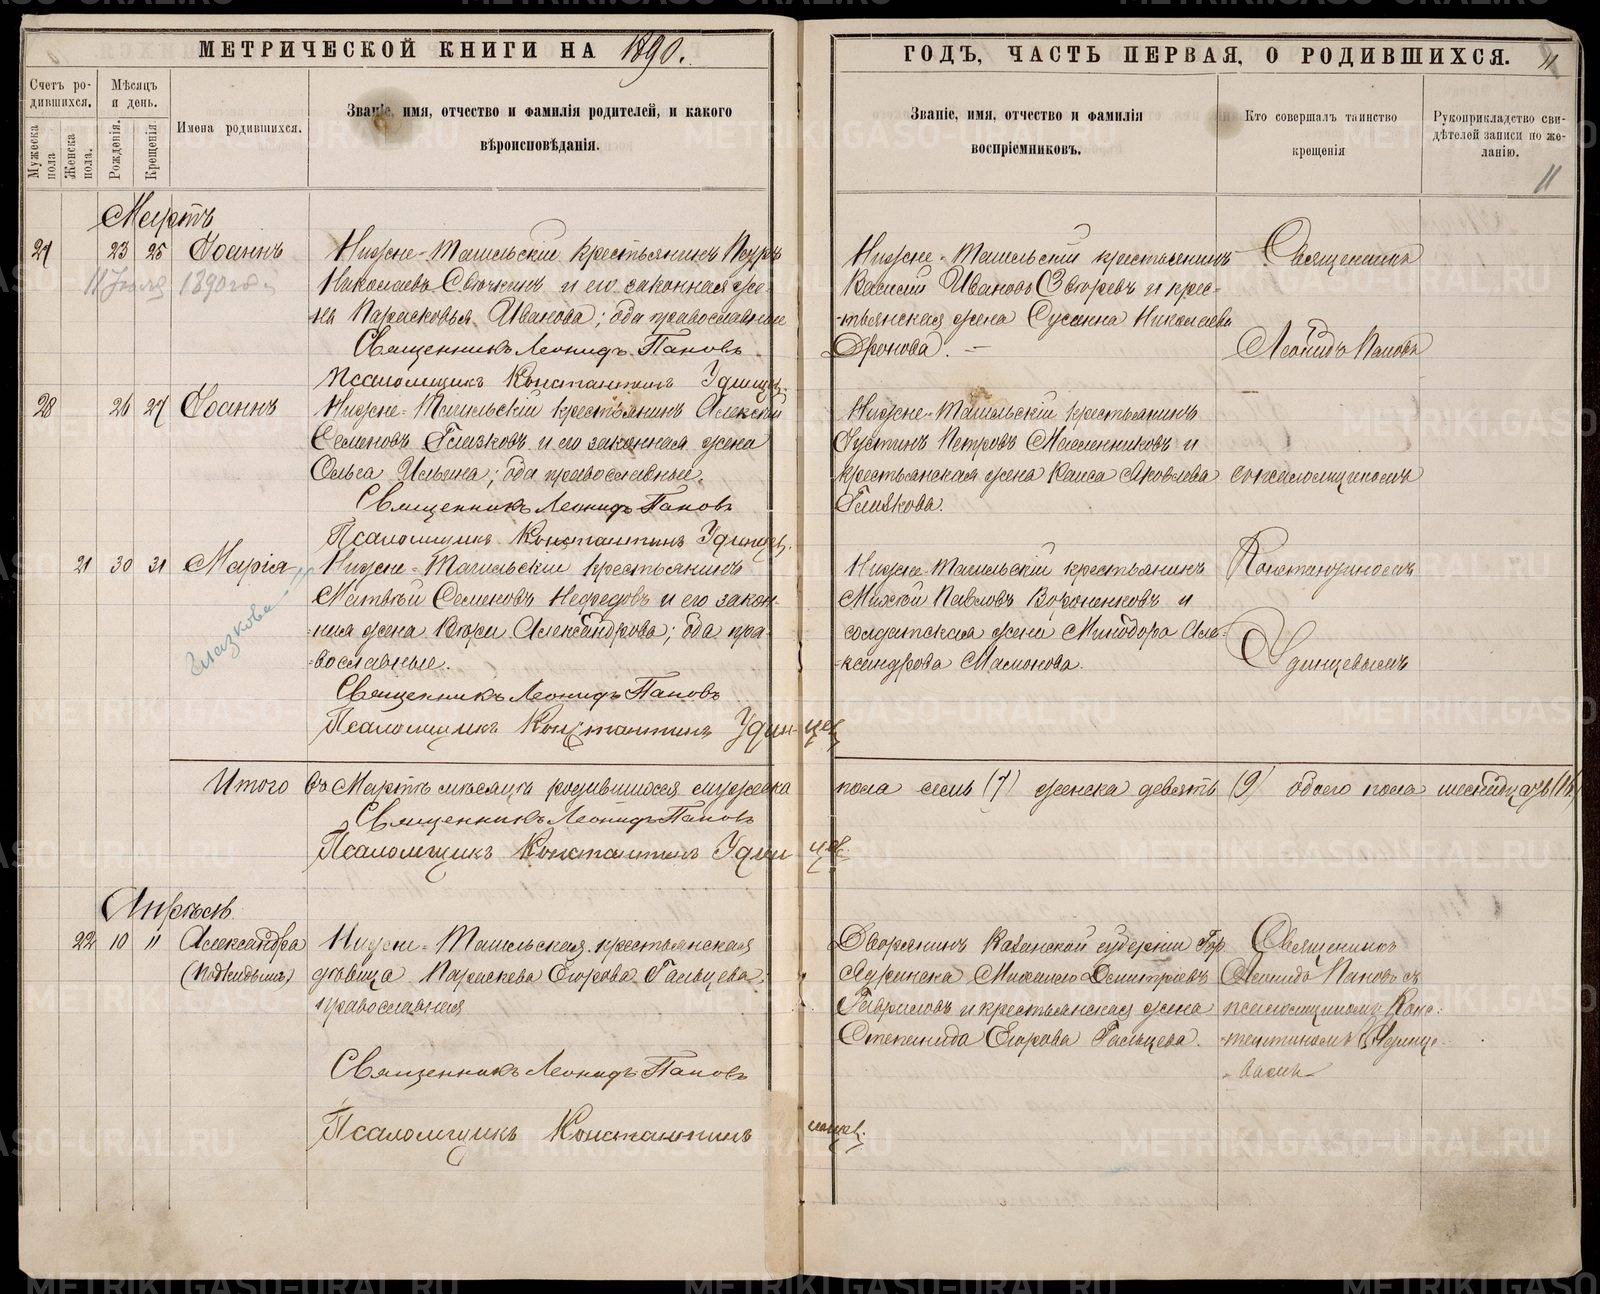 МЕТРИЧЕСКОЙ КНИГИ НА 1890.
Счетъ ро-
дившихся.
Мужеска пола
Женска пола.
Мѣсяцъ
и день.
Рожденія.
Крещенія.
Имена родившихся.
Званіе, имя, отчество и фамилія родителей, и какого
вѣроисповѣданія.
Мартъ
27 23 25 Іоаннъ
Нижне-Тагильскій крестьянинъ Петръ
Николаевъ и его законная же-
на Парасковья Иванова; оба православные
Священникъ Леонидъ Паповъ
Псаломщикъ Константинъ Удинцев.
28 26 27 Іоаннъ
Нижне-Тагильскій крестьянинъ Алексѣй
Семеновъ Глазковъ и его законная жена
Ольга Ильина; оба православные.
Священникъ Леонидъ Паповъ
Псаломщикъ Константинъ Удинцев.
21 30 31 Марія
Глазкова
Нижне-Тагильскій крестьянинъ
Матвѣй Семеновъ и его закон-
ная жена Александрова; оба пра-
вославные.
Священникъ Леонидъ Паповъ
Псаломщикъ Константинъ Удинцев
Итого въ Мартѣ мѣсяцѣ родившихся мужеска
Священникъ Леонидъ Паповъ
Псаломщикъ Константинъ Удинцев.
Апрѣль
22 10 11 Александра
(подкидышъ)
Нижне-Тагильская крестьянская
дѣвица Параскева Егорова Гальцева;
православная
Священникъ Леонидъ Паповъ
Псаломщикъ Константинъ
ГОДЪ, ЧАСТЬ ПЕРВАЯ, О РОДИВШИХСЯ.
11
Званіе, имя, отчество и фамилія
воспріемниковъ.
Кто совершалъ таинство
крещенія
Рукоприкладство сви-
дѣтелей записи по же-
ланію.
11
Нижне-Тагильскій крестьянинъ
Василій Ивановъ и крес-
тьянская жена Сусанна Николаева
Дронова.
Нижне-Тагильскій крестьянинъ
Іустинъ Петровъ Масленниковъ и
крестьянская жена Раиса Яковлева
Глазкова.
Нижне-Тагильскій крестьянинъ
Павловъ Вороненковъ и
солдатская жена Минодора Але-
ксандрова Мамонова.
Священникъ
Леонидъ Паповъ
съ псаломщикомъ
Константиномъ
Удинцевымъ
пола семь (7) женска девять (9) обоего пола шестнадцать (16)
Дворянинъ Казанской губерніи Гор
Ядринска Михаилъ Димитріевъ
Гавриловъ и крестьянская жена
Степанида Егорова Гальцева.
Священникъ
Леонидъ Паповъ съ
псаломщикомъ Конс-
тантиномъ Удинце-
вымъ